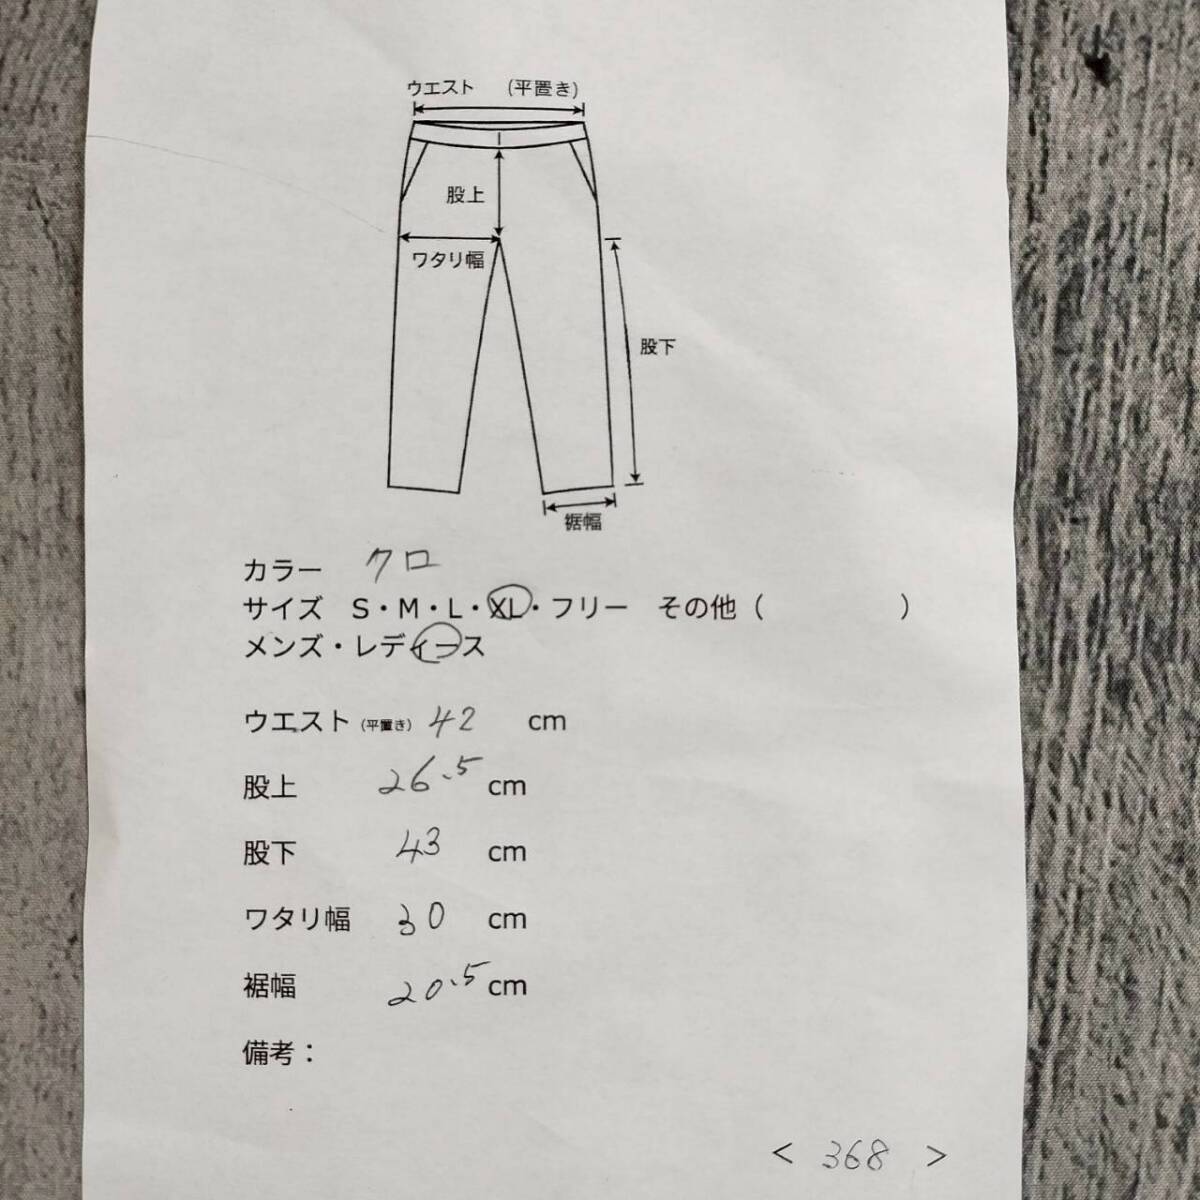 ウエスト (平置き)
股上
ワタリ幅
股下
裾幅
カラー クロ
サイズ S・M・L・XL・フリー その他（ ）
メンズ・レディース
ウエスト（平置き） 42 cm
股上 26.5 cm
股下 43 cm
ワタリ幅 30 cm
裾幅 20.5 cm
備考：
< 368 >